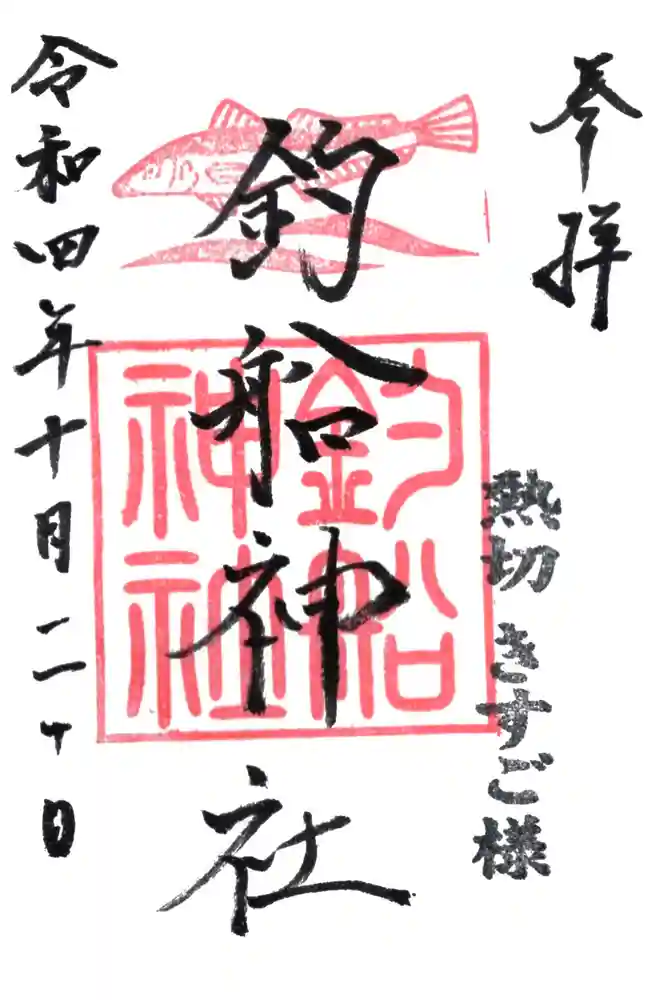 奉拝
熱切 きすご様
釣船神社
釣船
神社
令和四年十月二十日